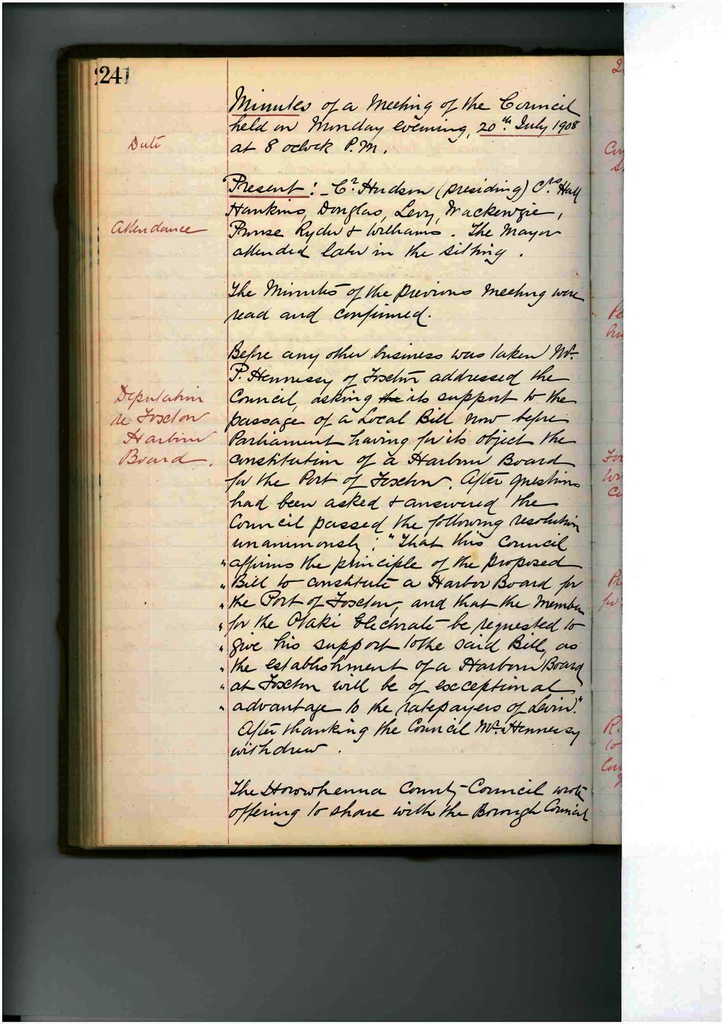 241
Minutes of a Meeting of the Council
held on Monday evening, 20th July 1908
Date
at 8 oclock P.M.
Present:- Cr Hudson (presiding) Crs Hall
Hankins, Douglas, Levy, Mackenzie,
Attendance
Prouse Ryder & Williams. The Mayor
attended later in the sitting.
The Minutes of the previous meeting were
read and confirmed.
Before any other business was taken Mr
P. Hennessy of Foxton addressed the
Deputation
Council, asking the its support to the
re Foxton
passage of a Local Bill now before
Harbour
Parliament having for its object the
Board.
constitution of a Harbour Board
for the Port of Foxton. After questions
had been asked & answered the
Council passed the following resolution
unanimously: "That this Council
" affirms the principle of the proposed
" Bill to constitute a Harbor Board for
" the Port of Foxton, and that the Member
" for the Otaki Electorate be requested to
" give his support to the said Bill, as
" the establishment of a Harbour Board
" at Foxton will be of exceptional
" advantage to the ratepayers of Levin."
After thanking the Council Mr Hennessy
withdrew.
The Horowhenua County Council wrote
offering to share with the Borough Council